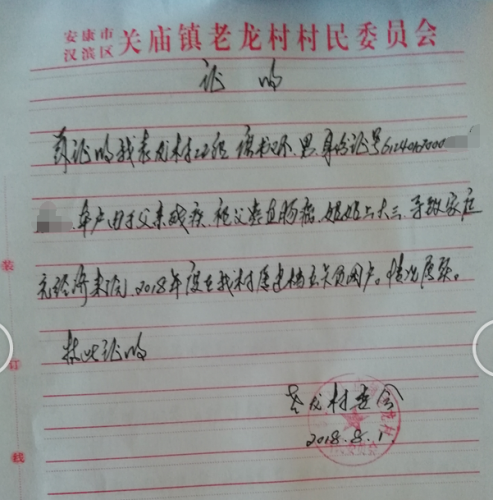 安康市
汉滨区 关庙镇老龙村村民委员会
证 明
兹证明我老龙村 组 男,身份证号6124012000
本户由于父亲残疾,祖父患直肠癌,姐姐上大三,导致家庭
无经济来源,2018年度在我村属建档立卡贫困户。情况属实。
特此证明
老龙村委会
2018.8.1
装
订
线